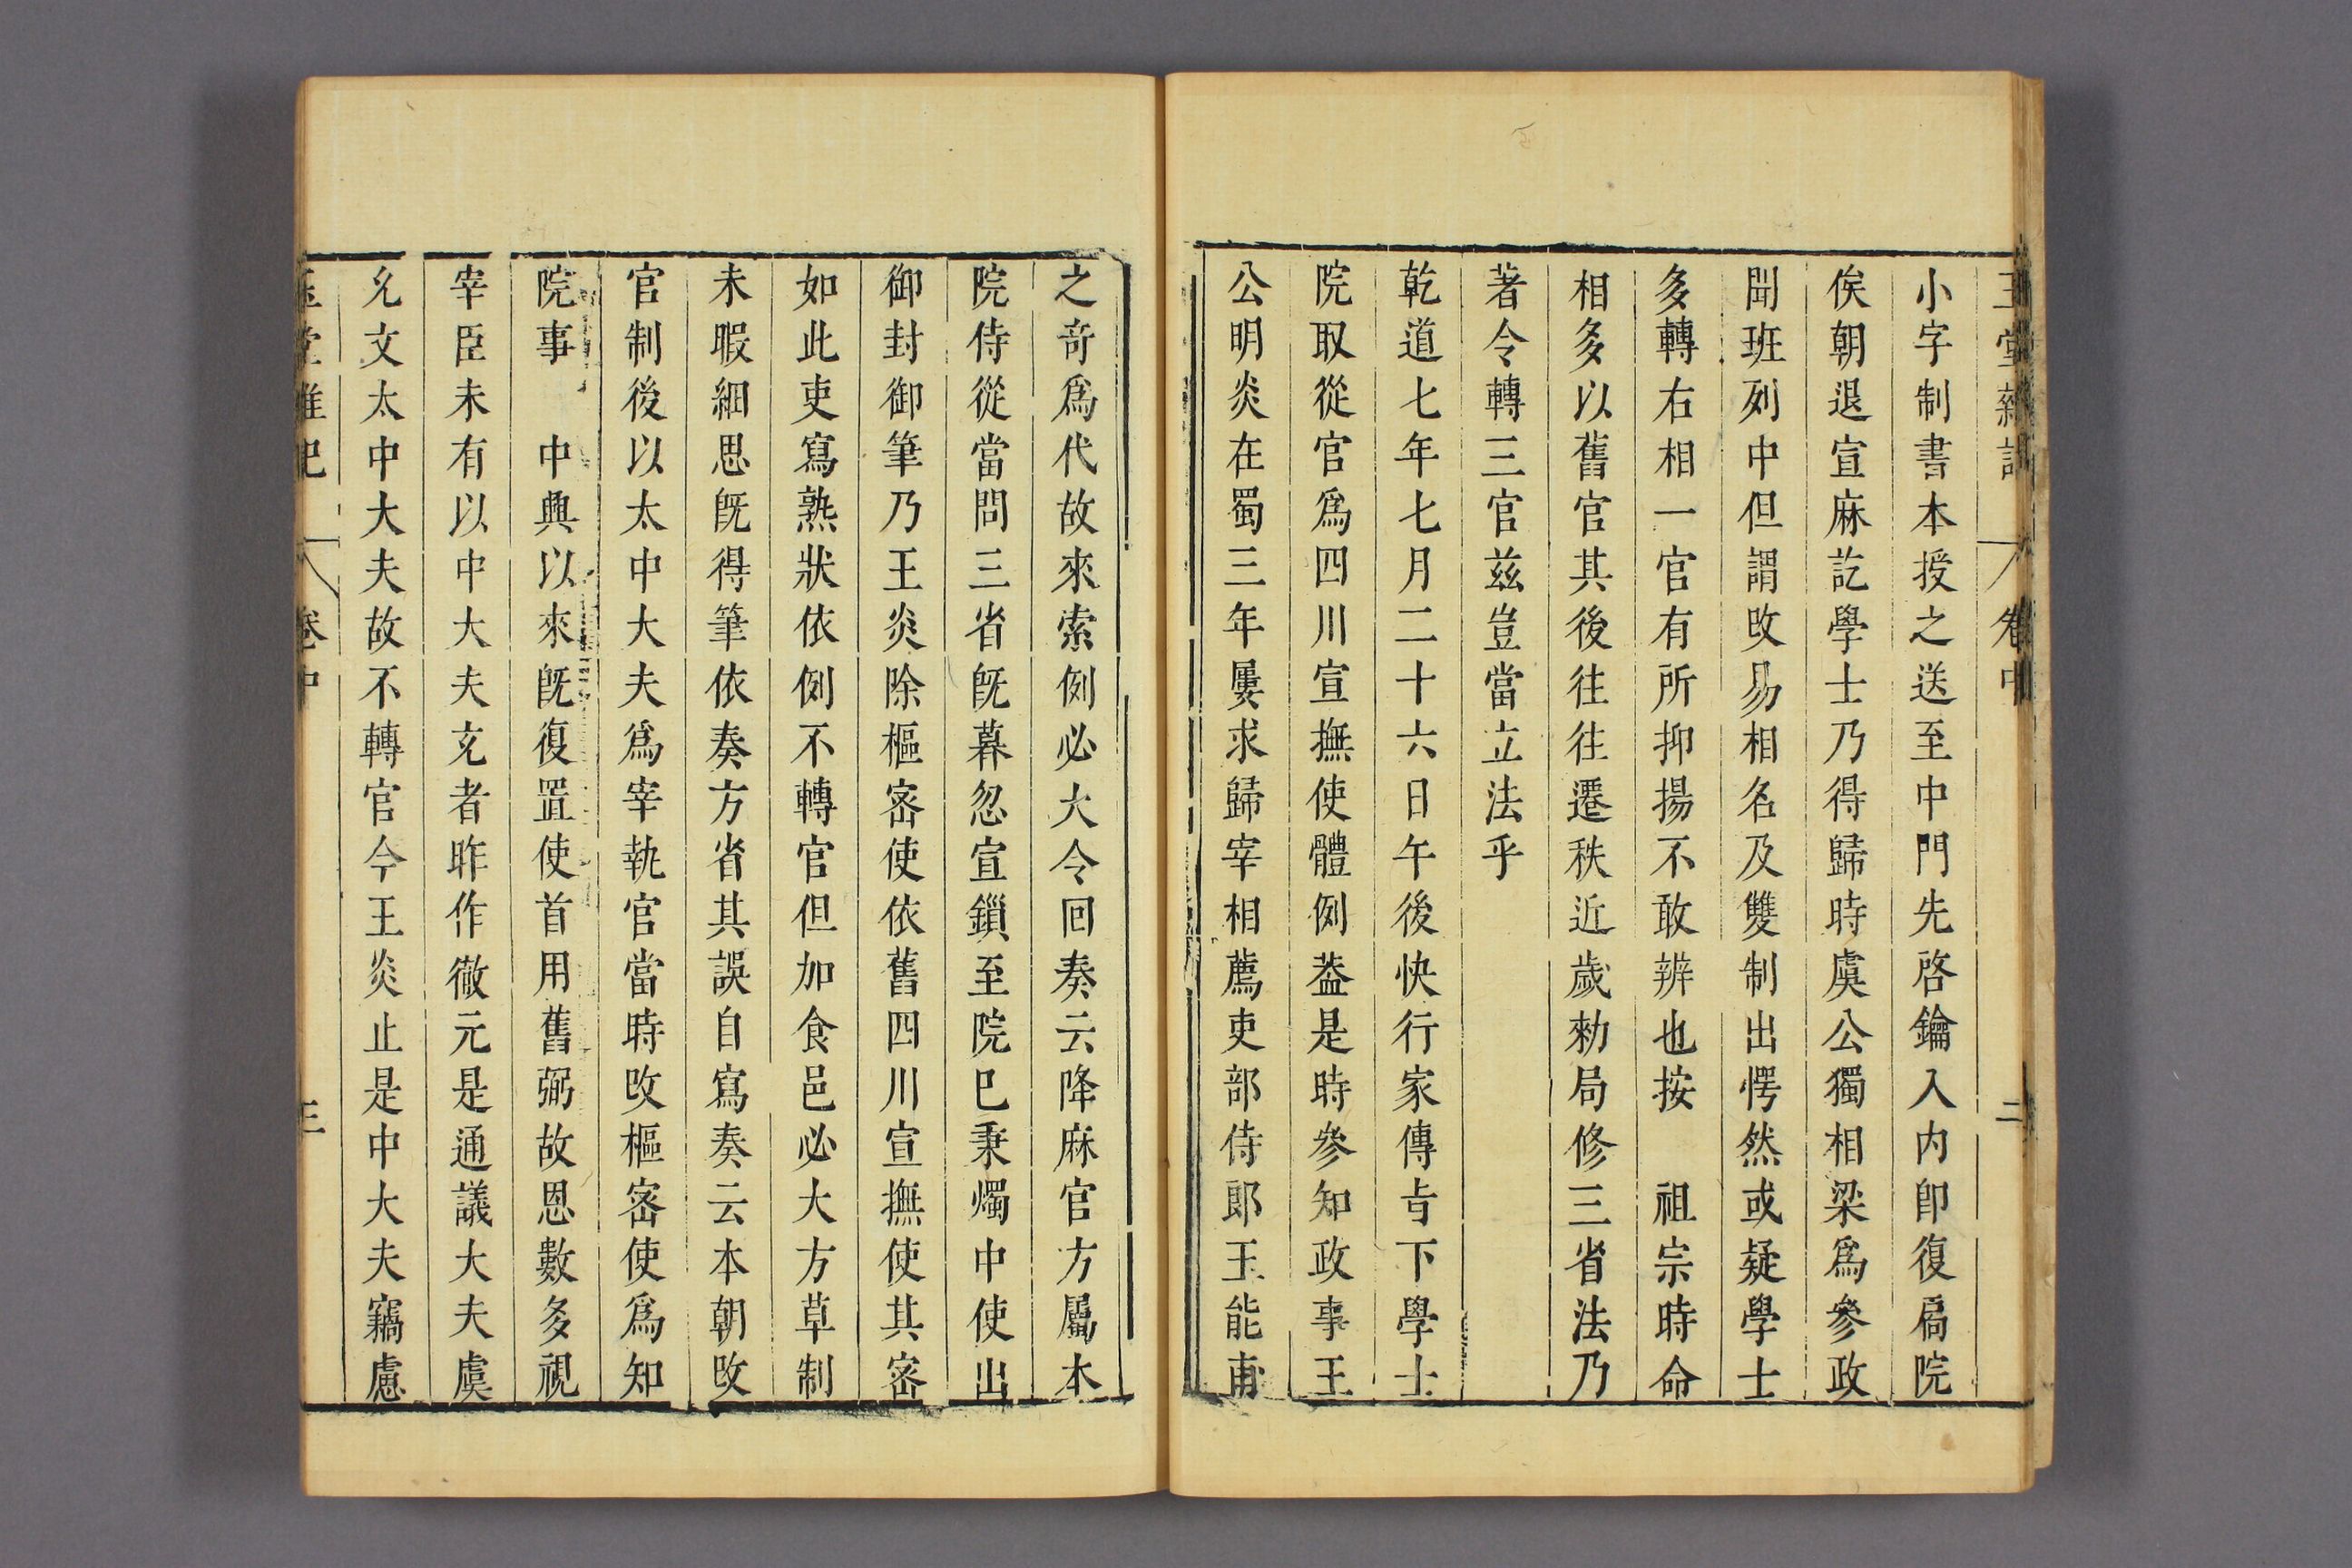 玉堂雜記 卷中 二
小字制書本授之送至中門先啓鑰入内卽復扃院
俟朝退宣麻訖學士乃得歸時虞公獨相梁爲參政
聞班列中但謂改易相名及雙制出愕然或疑學士
多轉右相一官有所抑揚不敢辨也按 祖宗時命
相多以舊官其後往往遷秩近歲勑局修三省法乃
著令轉三官兹豈當立法乎
乾道七年七月二十六日午後快行家傳㫖下學士
院取從官爲四川宣撫使體例葢是時參知政事王
公明炎在蜀三年屢求歸宰相薦吏部侍郎王能甫
之奇爲代故來索例必大令回奏云降麻官方屬本
院侍從當問三省旣暮忽宣鎖至院巳秉燭中使出
御封御筆乃王炎除樞宻使依舊四川宣撫使其宻
如此吏寫熟狀依例不轉官但加食邑必大方草制
未暇細思旣得筆依奏方省其誤自寫奏云本朝改
官制後以太中大夫爲宰執官當時改樞宻使爲知
院事 中興以來旣復置使首用舊弼故恩數多視
宰臣未有以中大夫充者昨作徹元是通議大夫虞
允文太中大夫故不轉官今王炎止是中大夫竊慮
玉堂雜記 卷中 三